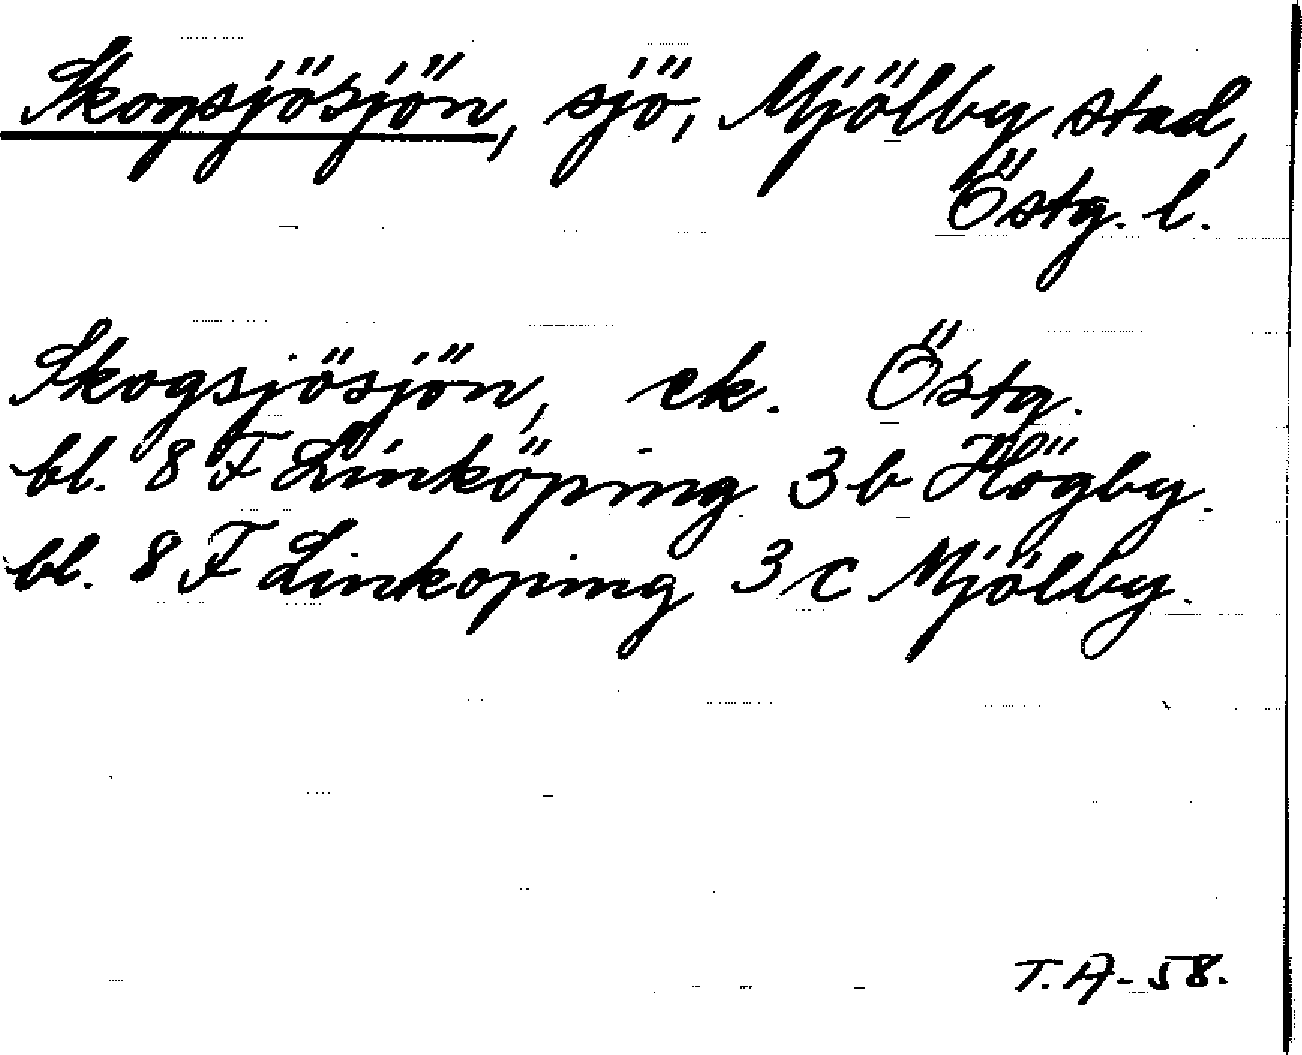 Skogsjösjön, sjö, Mjölby stad,
Östg. l.
Skogsjösjön, ek. Östg.
bl. 8 F Linköping 3 b Högby.
bl. 8 F Linkoping 3 c Mjölby.
T. A-58.